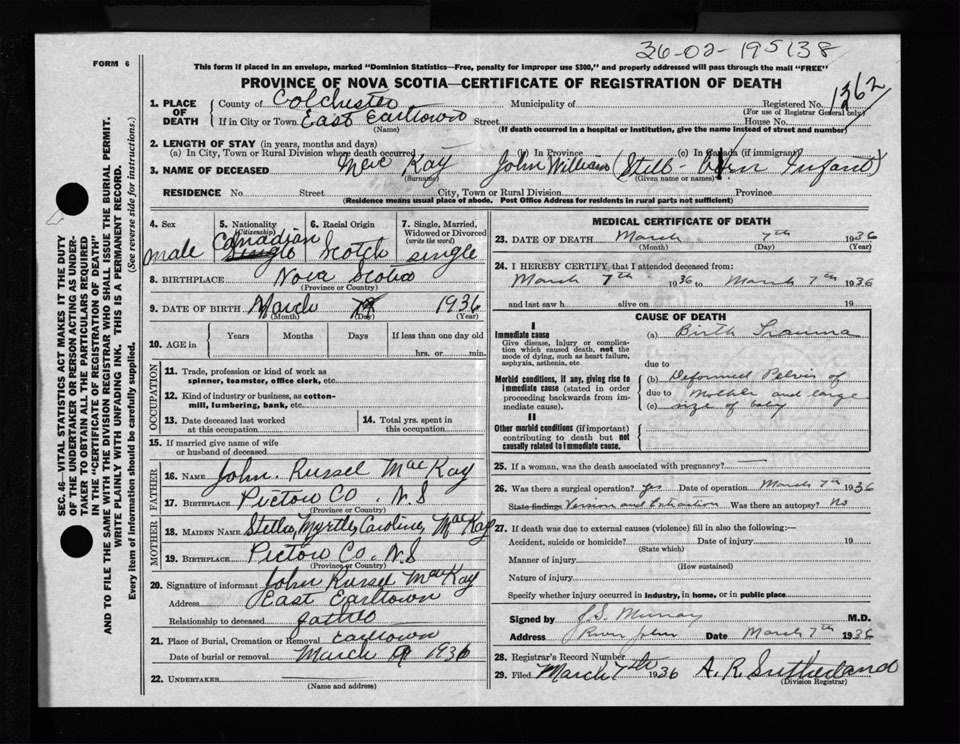 36-02-195138
FORM 6
This form if placed in an envelope, marked "Dominion Statistics—Free, penalty for improper use $300," and properly addressed will pass through the mail "FREE"
PROVINCE OF NOVA SCOTIA—CERTIFICATE OF REGISTRATION OF DEATH
1362
1. PLACE OF DEATH County of Colchester Municipality of Registered No.
(For use of Registrar General only)
If in City or Town East Earltown Street House No.
(Name) (If death occurred in a hospital or institution, give the name instead of street and number)
2. LENGTH OF STAY (in years, months and days)
(a) In City, Town or Rural Division where death occurred (b) In Province (c) In Canada (if immigrant)
3. NAME OF DECEASED Mac Kay John William (Still-Born Infant)
(Surname) (Given name or names)
RESIDENCE No. Street City, Town or Rural Division Province
(Residence means usual place of abode. Post Office Address for residents in rural parts not sufficient)
4. Sex 5. Nationality (Citizenship) 6. Racial Origin 7. Single, Married, Widowed or Divorced (write the word)
male Canadian Single Scotch single
8. BIRTHPLACE Nova Scotia
(Province or Country)
9. DATE OF BIRTH March 1936
(Month) (Day) (Year)
10. AGE in Years Months Days If less than one day old
hrs. or min.
OCCUPATION
11. Trade, profession or kind of work as spinner, teamster, office clerk, etc.
12. Kind of industry or business, as cotton-mill, lumbering, bank, etc.
13. Date deceased last worked at this occupation 14. Total yrs. spent in this occupation
15. If married give name of wife or husband of deceased
FATHER
16. NAME John Russel MacKay
17. BIRTHPLACE Pictou Co. N.S
(Province or Country)
MOTHER
18. MAIDEN NAME Stella Myrtle Caroline MacKay
19. BIRTHPLACE Pictou Co. N.S
(Province or Country)
20. Signature of informant John Russel MacKay
Address East Earltown
Relationship to deceased father
21. Place of Burial, Cremation or Removal Earltown
Date of burial or removal March 1936
22. UNDERTAKER
(Name and address)
MEDICAL CERTIFICATE OF DEATH
23. DATE OF DEATH March 7th 1936
(Month) (Day) (Year)
24. I HEREBY CERTIFY that I attended deceased from:
March 7th 1936 to March 7th 1936
and last saw h alive on 19
CAUSE OF DEATH
I
Immediate cause (a) Birth Trauma
Give disease, injury or complication which caused death, not the mode of dying, such as heart failure, asphyxia, asthenia, etc
due to
Morbid conditions, if any, giving rise to immediate cause (stated in order proceeding backwards from immediate cause).
(b) Deformed Pelvis of
due to Mother and large
(c) size of baby
II
Other morbid conditions (if important) contributing to death but not causally related to immediate cause.
25. If a woman, was the death associated with pregnancy?
26. Was there a surgical operation? Yes Date of operation March 7th 1936
State findings Version and Extraction Was there an autopsy? No
27. If death was due to external causes (violence) fill in also the following:—
Accident, suicide or homicide? Date of injury 19
(State which)
Manner of injury
(How sustained)
Nature of injury
Specify whether injury occurred in industry, in home, or in public place
Signed by J.S. Murray M.D.
Address River John Date March 7th 1936
28. Registrar's Record Number
29. Filed March 7th 1936 A. R. Sutherland
(Division Registrar)
SEC. 46—VITAL STATISTICS ACT MAKES IT THE DUTY
OF THE UNDERTAKER OR PERSON ACTING AS UNDER-
TAKER TO OBTAIN ALL THE PARTICULARS REQUIRED
IN THE "CERTIFICATE OF REGISTRATION OF DEATH"
AND TO FILE THE SAME WITH THE DIVISION REGISTRAR WHO SHALL ISSUE THE BURIAL PERMIT.
WRITE PLAINLY WITH UNFADING INK. THIS IS A PERMANENT RECORD.
Every item of information should be carefully supplied. (See reverse side for instructions.)